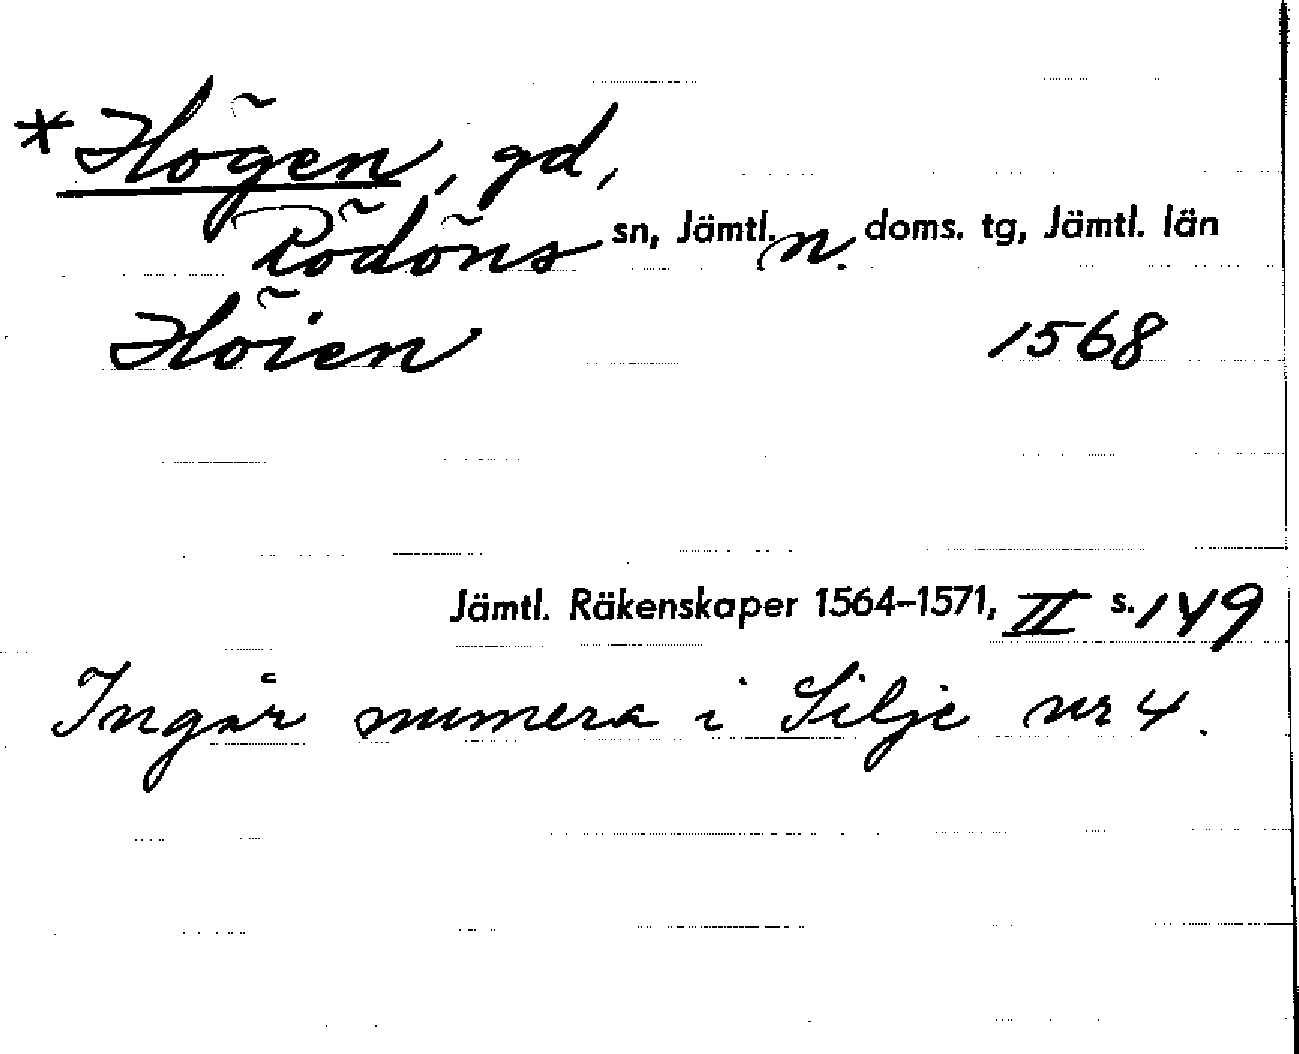 *Högen, gd,
Rödöns sn, Jämtl. n. doms. tg, Jämtl. län
Höien 1568
Jämtl. Räkenskaper 1564–1571, II s. 149
Ingår numera i Silje nr 4.